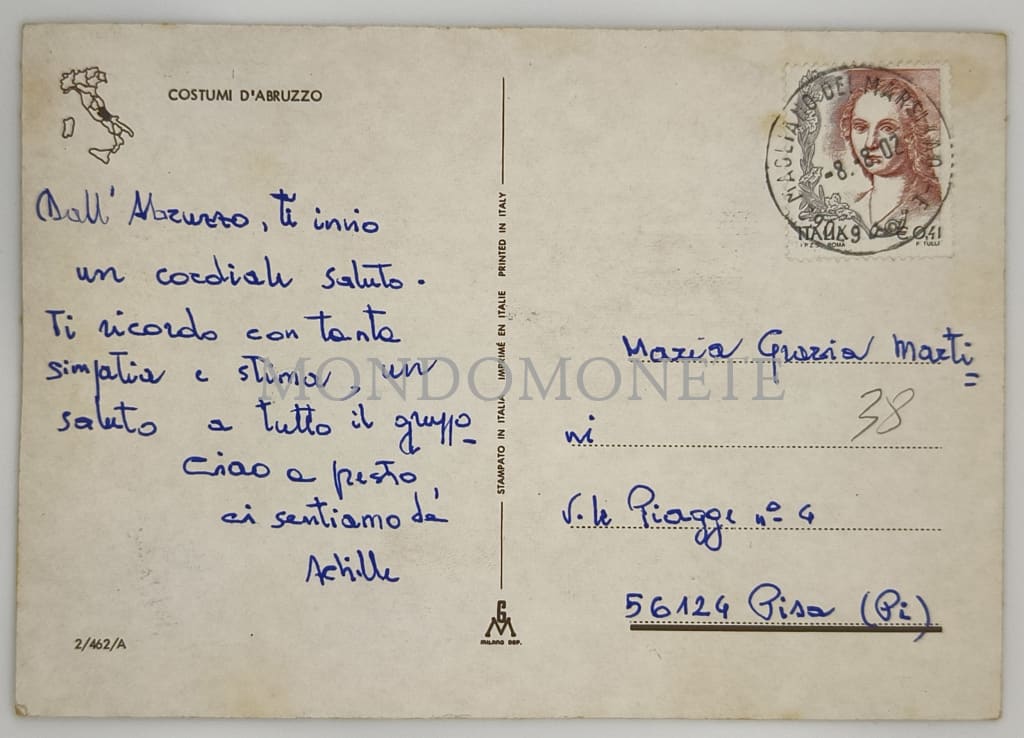 COSTUMI D'ABRUZZO
Dall' Abruzzo, ti invio
un cordiale saluto.
Ti ricordo con tanta
simpatia e stima, un
saluto a tutto il gruppo
Ciao a presto
ci sentiamo da
Achille
2/462/A
STAMPATO IN ITALIA IMPRIMÉ EN ITALIE PRINTED IN ITALY
MILANO DEP.
MAGLIANO DEI MARSI
-8.-8.02
ITALIA € 0,41
I.P.Z.S. ROMA F. TULLI
Maria Grazia Marti=
ni
38
V.le Piagge nº 4
56124 Pisa (Pi)
MONDOMONETE